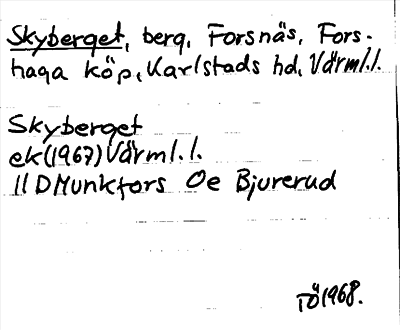 Skyberget, berg, Forsnäs, Fors-
haga köp, Karlstads hd, Värml.l.
Skyberget
ek(1967) Värml.l.
11D Munkfors Oe Bjurerud
TÖ 1968.